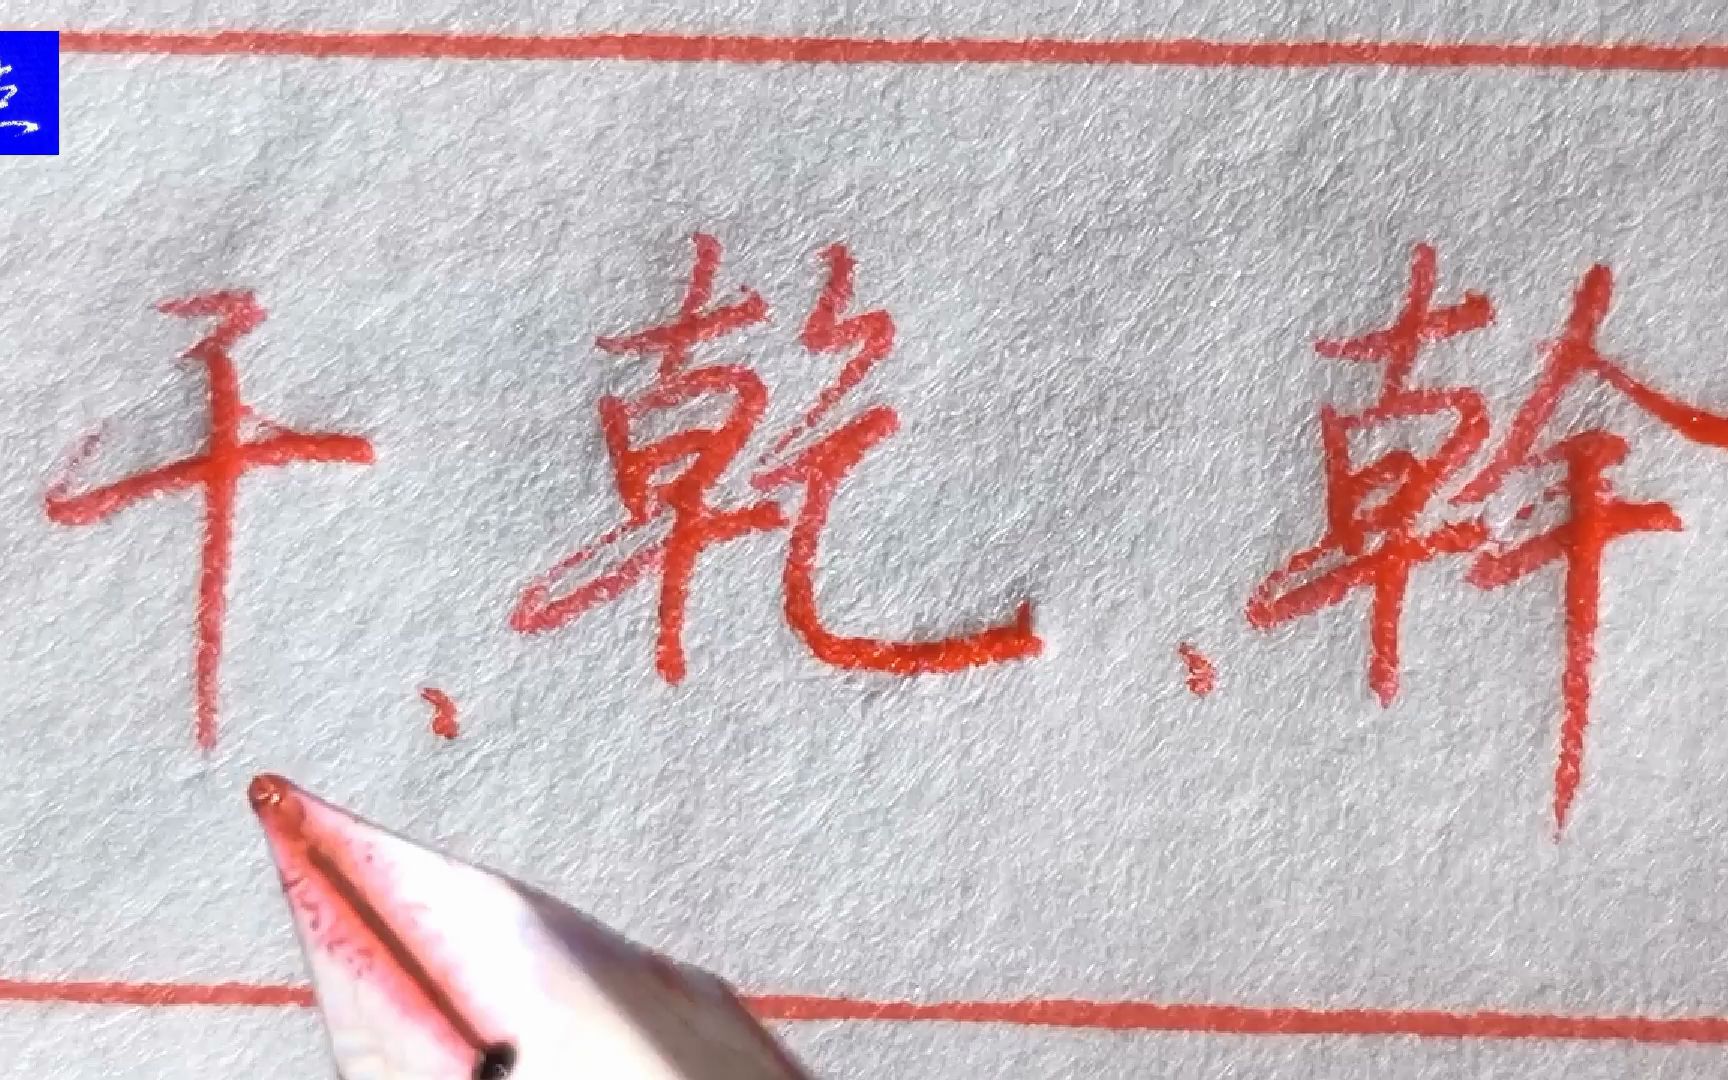 干、乾、幹